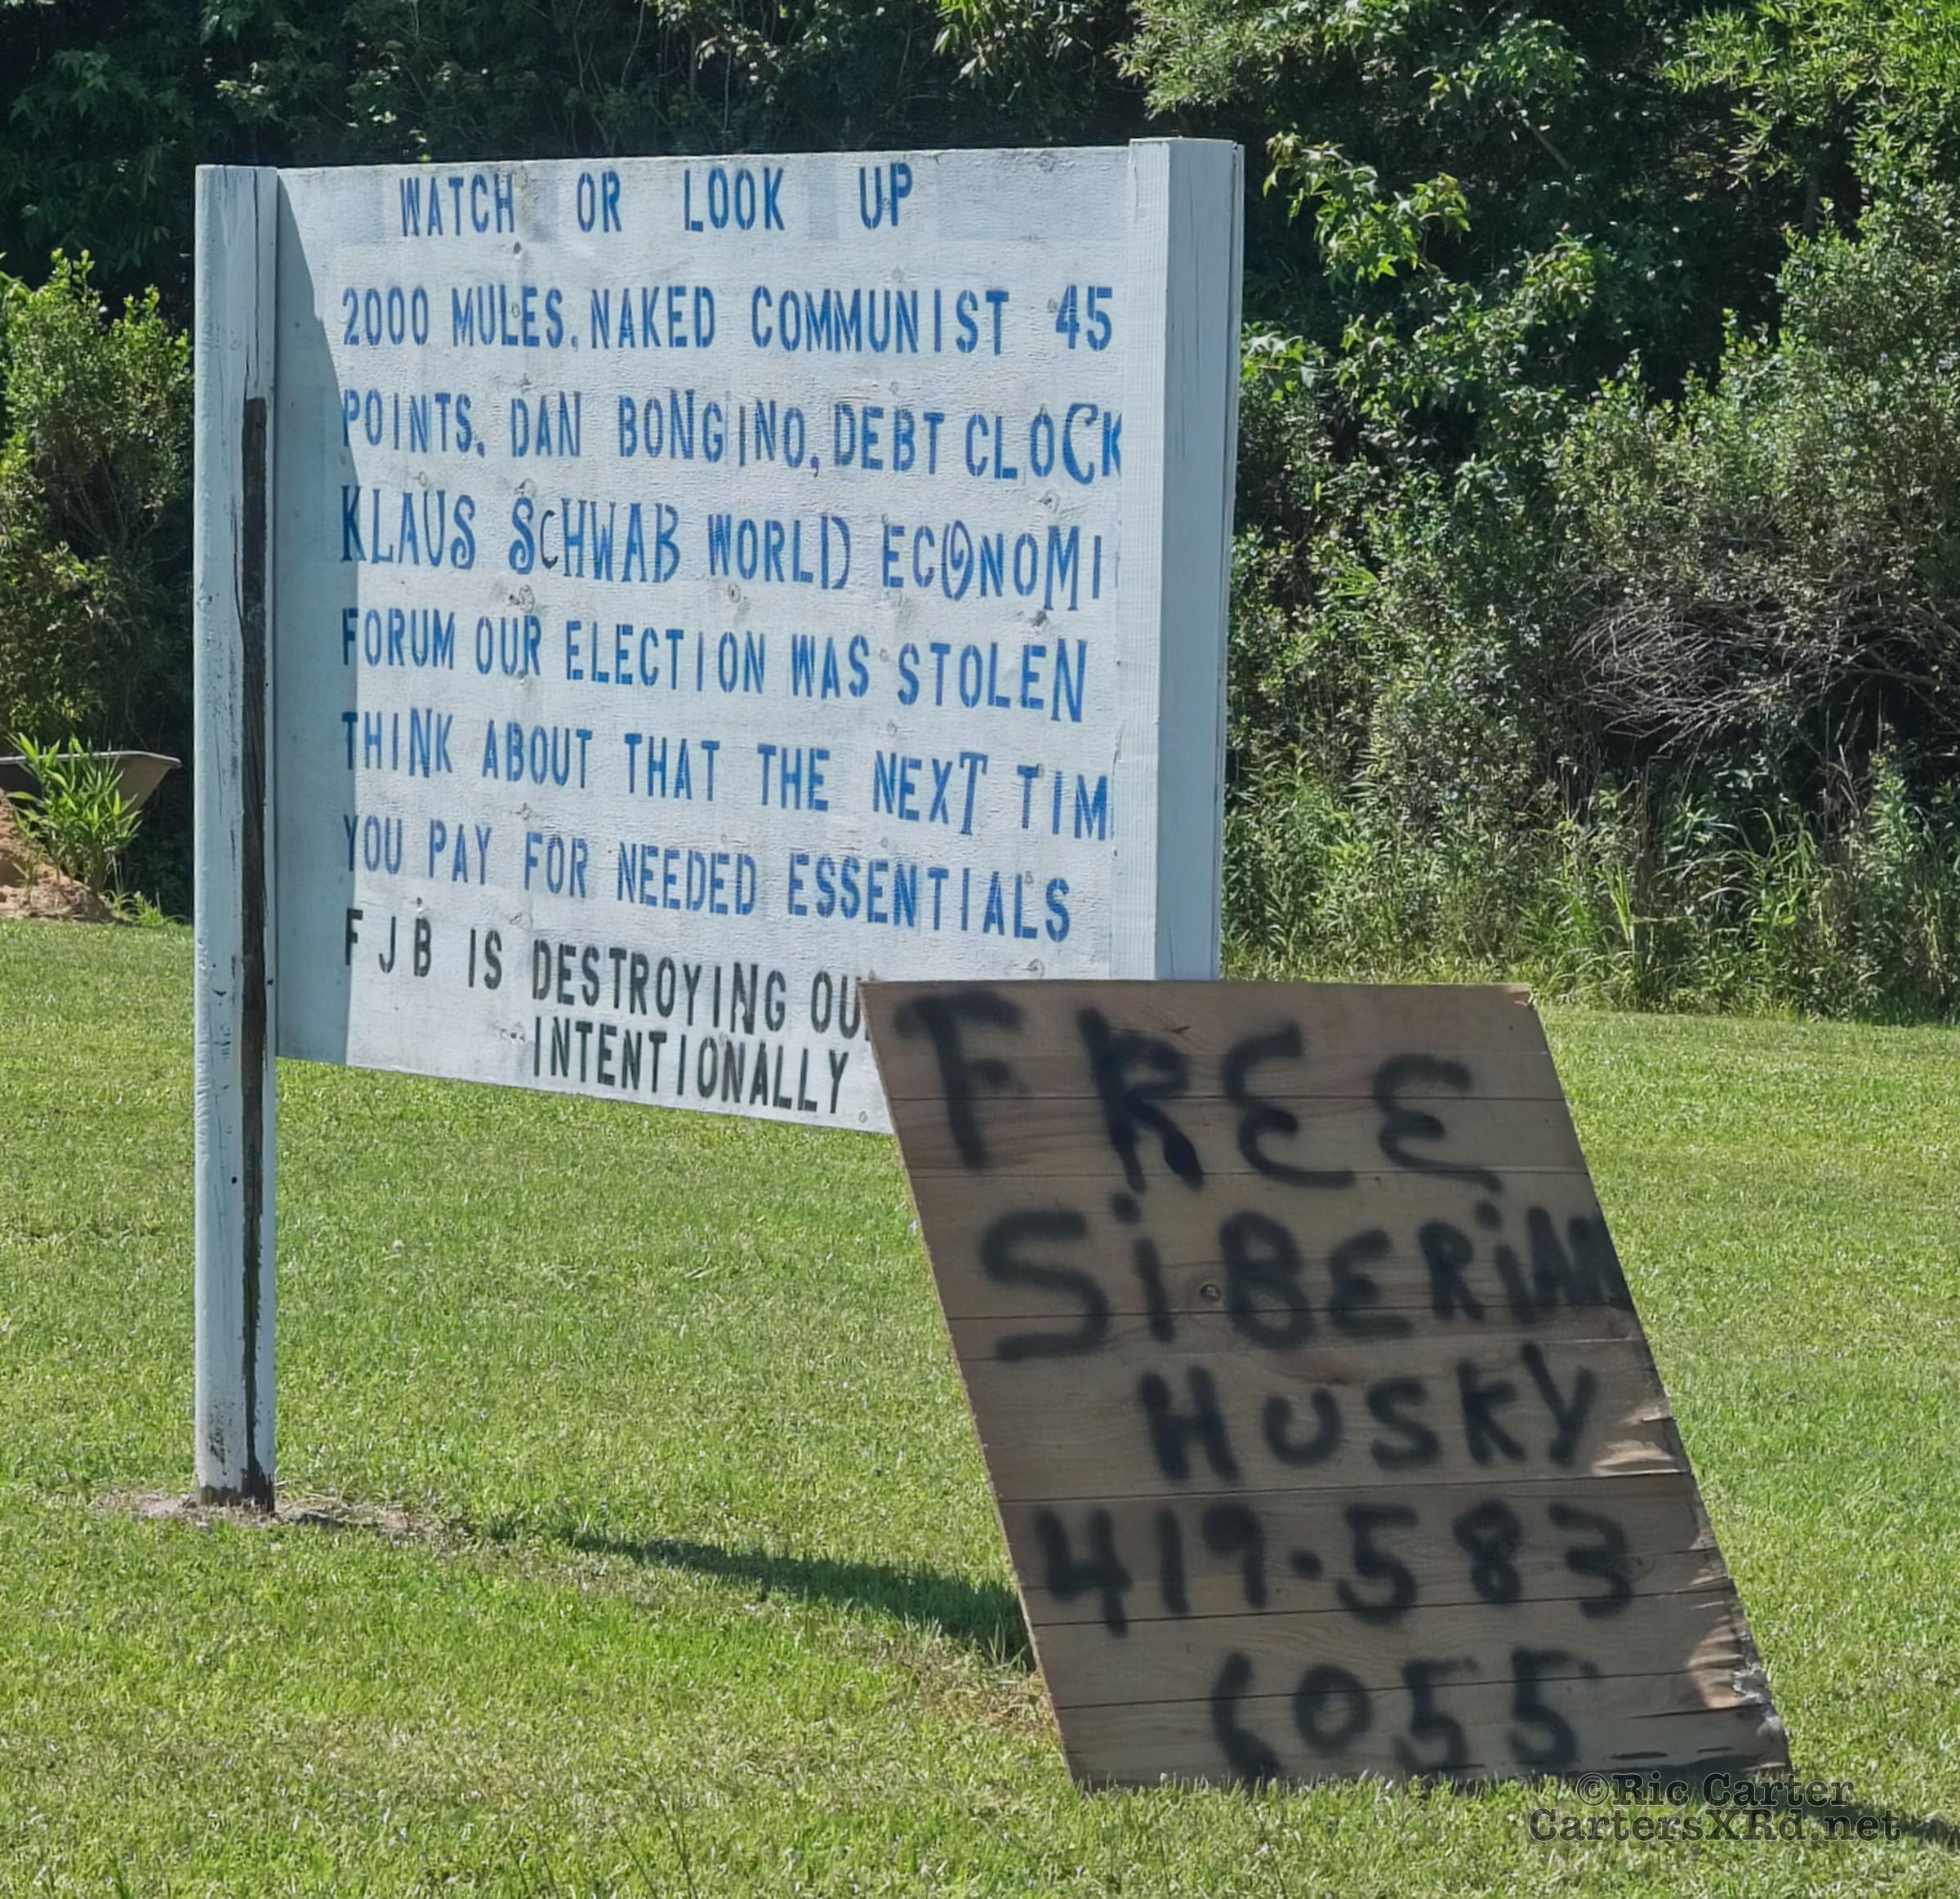 WATCH OR LOOK UP
2000 MULES. NAKED COMMUNIST 45
POINTS. DAN BONGINO, DEBT CLOCK
KLAUS SCHWAB WORLD ECONOMI
FORUM OUR ELECTION WAS STOLEN
THINK ABOUT THAT THE NEXT TIM
YOU PAY FOR NEEDED ESSENTIALS
FJB IS DESTROYING OU
INTENTIONALLY
FREE
SiBERiAN
HUSKY
419.583
6055
©Ric Carter
CartersXRd.net